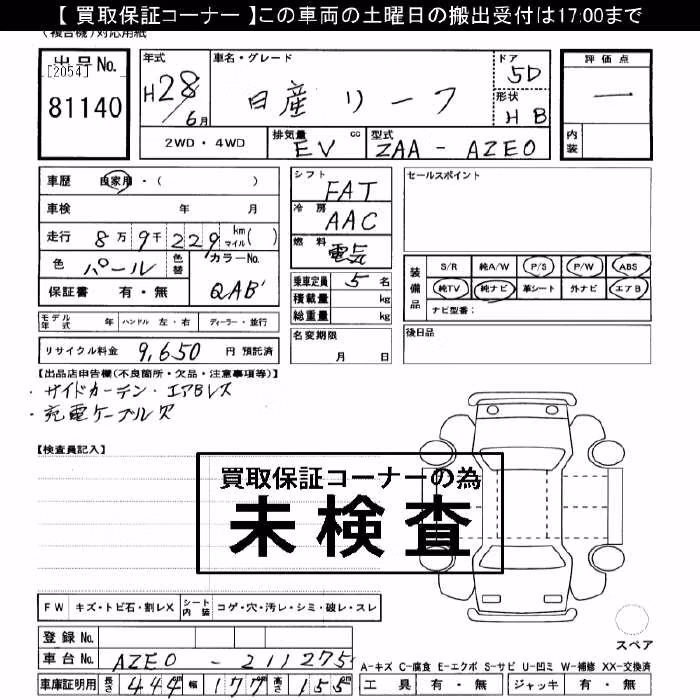 【 買取保証コーナー 】この車両の土曜日の搬出受付は17:00まで
(複合機)対応用紙
出品No.
[2054]
81140
年式
H28/6月
車名・グレード
日産 リーフ
ドア
5D
形状
HB
評価点
一
内装
2WD・4WD
排気量 cc
EV
型式
ZAA - AZE0
車歴 自家用・( )
車検 年 月
走行 8万9千229 km マイル( )
色 パール 色替
カラーNo. QAB
保証書 有・無
モデル年式 年 ハンドル 左・右 ディーラー・並行
リサイクル料金 9,650 円 預託済
シフト FAT
冷房 AAC
燃料 電気
乗車定員 5 名
積載量 kg
総重量 kg
名変期限
月 日
セールスポイント
装備品
S/R 純A/W P/S P/W ABS
純TV 純ナビ 革シート 外ナビ エアB
ナビ型番:
後日品
【出品店申告欄(不良箇所・欠品・注意事項等)】
・サイドカーテン・エアBレス
・充電ケーブル欠
【検査員記入】
買取保証コーナーの為
未検査
FW キズ・トビ石・割レX シート内装 コゲ・穴・汚レ・シミ・破レ・スレ
登録No.
車台No. AZE0 - 211275
車庫証明用 長さ 444 cm 幅 177 cm 高さ 155 cm
スペア
A-キズ C-腐食 E-エクボ S-サビ U-凹ミ W-補修 XX-交換済
工具 有・無 ジャッキ 有・無